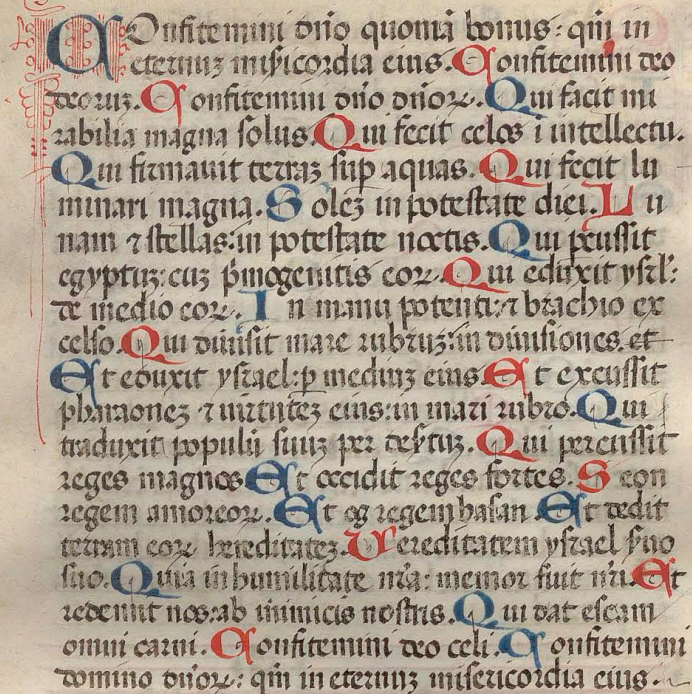 COnfitemini dño quoniã bonus: qm̃ in
eternuꝫ misericordia eius. Confitemini deo
deoruꝫ. Confitemini dño dñoꝝ. Qui facit mi
rabilia magna solus. Qui fecit celos ĩ intellectu.
Qui firmauit terraꝫ sup̃ aquas. Qui fecit lu
minari magna. Soleꝫ in potestate diei. Lu
nam ⁊ stellas: in potestate noctis. Qui p̃cussit
egyptuꝫ: cuꝫ p̃mogenitis eoꝝ. Qui eduxit ysrl̃:
de medio eoꝝ. In manu potenti: ⁊ brachio ex
celso. Qui diuisit mare rubruꝫ: in diuisiones. et
Et eduxit ysrael: ꝑ mediuꝫ eius. Et excussit
pharaoneꝫ ⁊ uirtuteꝫ eius: in mari rubro. Qui
traduxit populũ suuꝫ per des̃tuꝫ. Qui percussit
reges magnos Et occidit reges fortes. Seon
regem amoreoꝝ. Et og regem basan. Et dedit
terram eoꝝ hereditateꝫ. Hereditatem ysrael s̃uo
suo. Quia in humilitate nr̃a: memor fuit nr̃i. Et
redemit nos: ab inimicis nostris. Qui dat escam
omni carni. Confitemini deo celi. Confitemini
domino dñoꝝ: qm̃ in eternuꝫ misericordia eius.